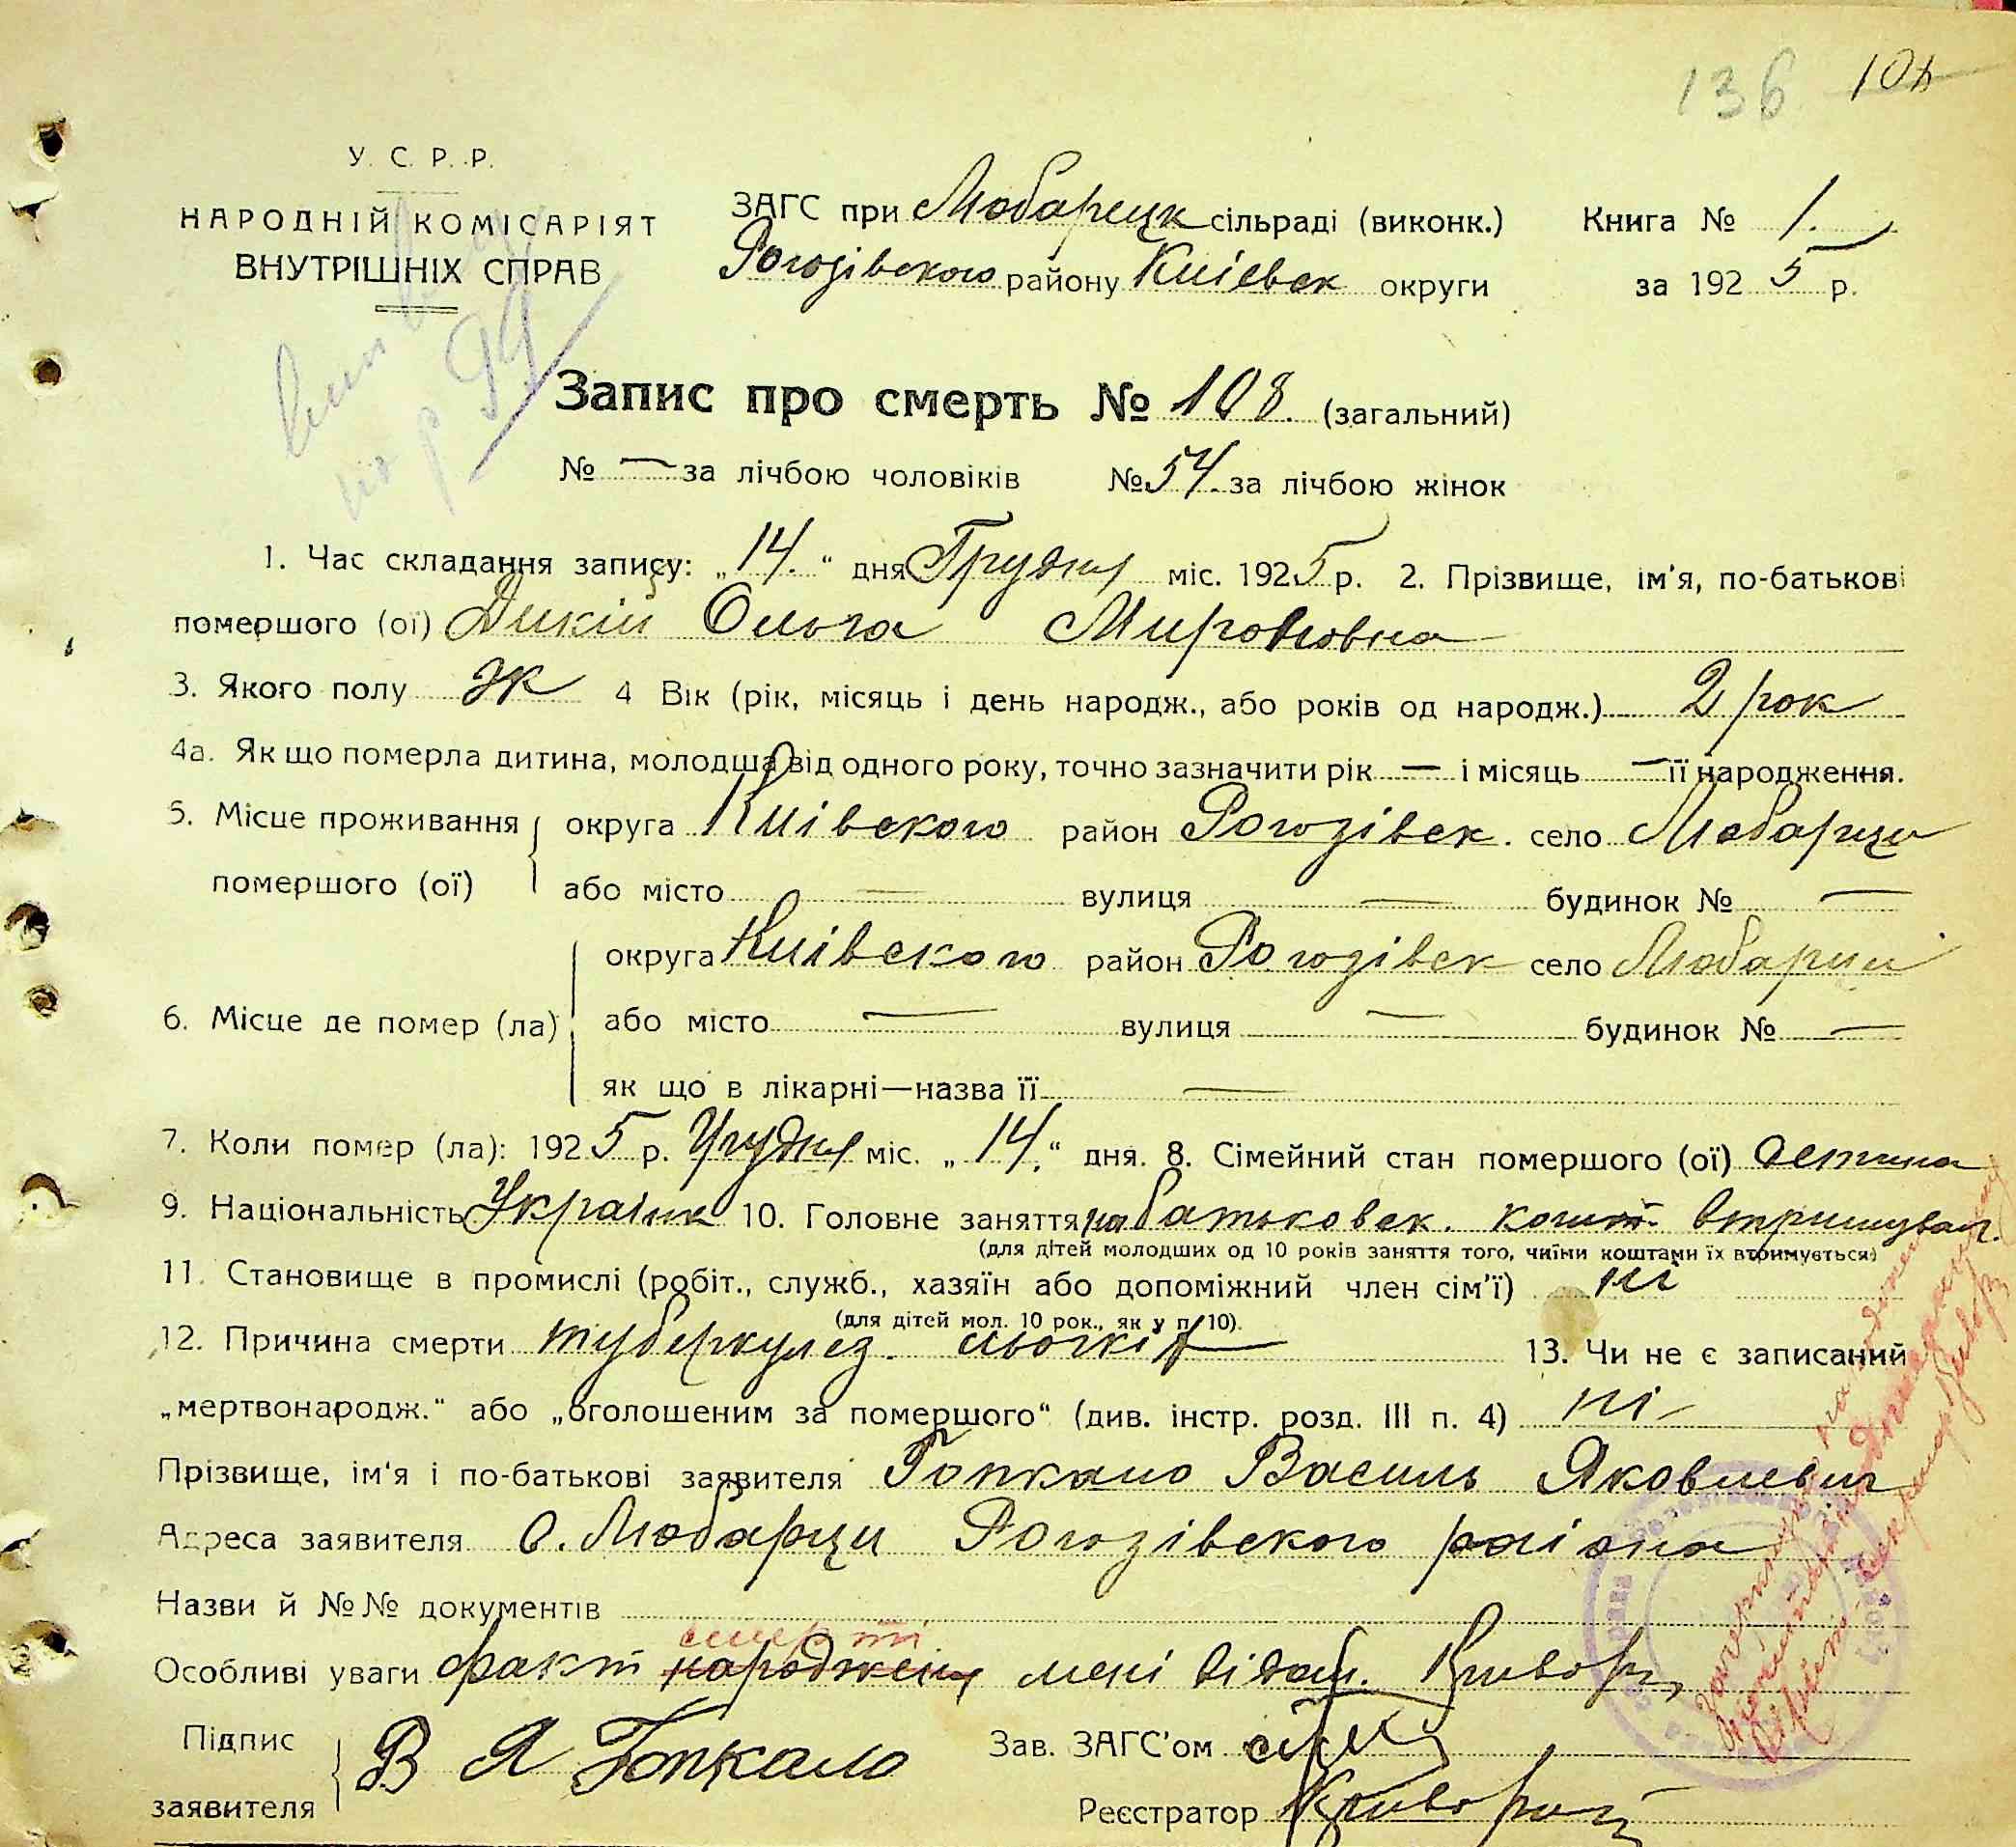 136 104
У. С. Р. Р.
НАРОДНІЙ КОМІСАРІЯТ
ВНУТРІШНІХ СПРАВ
ЗАГС при Любарецк сільраді (виконк.)
Рогозівского району Київск округи
Книга № 1.
за 1925 р.
99
Запис про смерть № 108. (загальний)
№ — за лічбою чоловіків № 54. за лічбою жінок
1. Час складання запису: „14.“ дня Грудня міс. 1925 р. 2. Прізвище, ім'я, по-батькові
помершого (ої) Дикій Ольга Мироновна
3. Якого полу ж 4 Вік (рік, місяць і день народж., або років од народж.) 2 рок
4а. Як що померла дитина, молодша від одного року, точно зазначити рік — і місяць — її народження.
5. Місце проживання помершого (ої) округа Київского район Рогозівск. село Любарци
або місто — вулиця — будинок № —
6. Місце де помер (ла) округа Київского район Рогозівск село Любарци
або місто — вулиця — будинок № —
як що в лікарні—назва її —
7. Коли помер (ла): 1925 р. Грудня міс. „14.“ дня. 8. Сімейний стан помершого (ої) детина
9. Національність Україн 10. Головне заняття на батьковск. кошт. втримував.
(для дітей молодших од 10 років заняття того, чиїми коштами їх втримується)
11. Становище в промислі (робіт., служб., хазяїн або допоміжний член сім'ї) ні
(для дітей мол. 10 рок., як у п. 10).
12. Причина смерти туберкулез льогків 13. Чи не є записаний
„мертвонародж.“ або „оголошеним за помершого“ (див. інстр. розд. III п. 4) ні
Прізвище, ім'я і по-батькові заявителя Гопкало Василь Яковлевич
Адреса заявителя С. Любарци Рогозівского раіона
Назви й №№ документів
смерті
Особливі уваги факт народження мені відом. Кривору
Підпис заявителя В Я Гопкало
Зав. ЗАГС'ом
Реєстратор